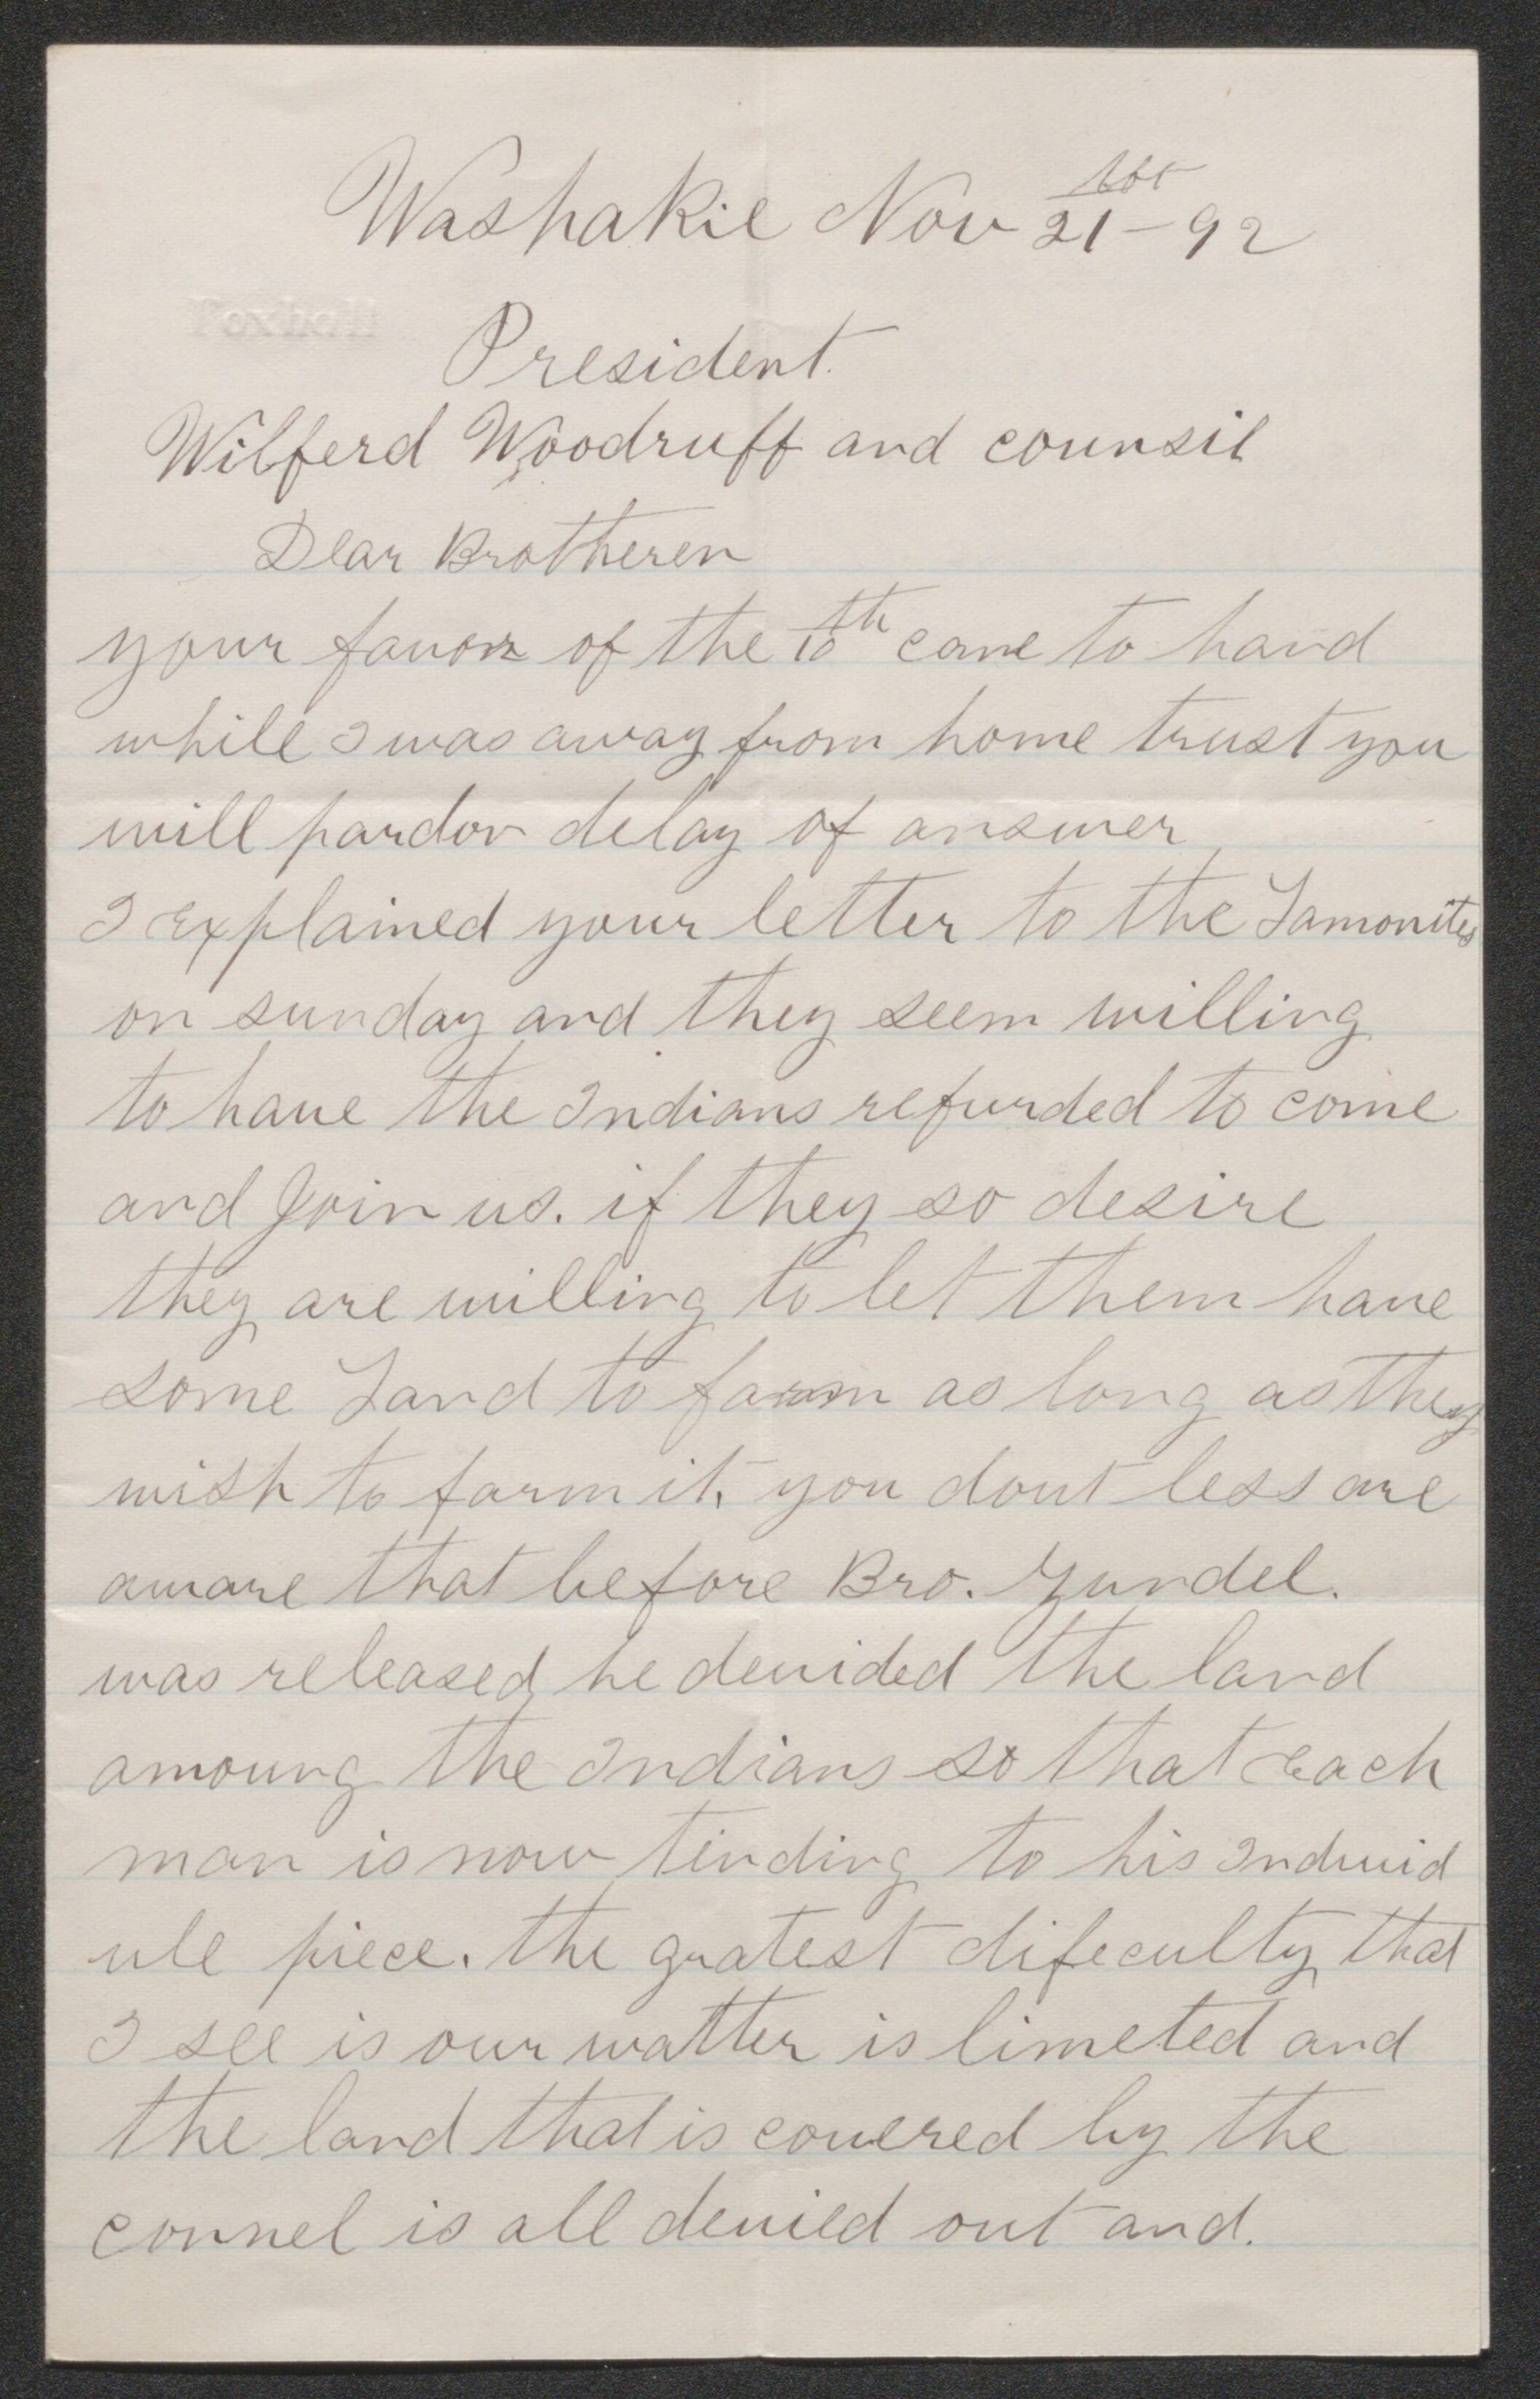 Washakie Nov 21st - 92
President.
Wilferd Woodruff and counsil
Dear Brotheren
your favor of the 10th came to hand
while I was away from home trust you
will pardon delay of answer
I Explained your letter to the Lamonites
on sunday and they seem willing
to have the Indians refurded to come
and Join us. if they so desire
they are willing to let them have
some Land to farm as long as they
wish to farm it, you dout less are
aware that before Bro. Zundel.
was released he devided the land
amoung the Indians so that Each
man is now tending to his Individ
ule piece. the gratest difeculty that
I see is our watter is limeted and
the land that is covered by the
connel is all devied out and.